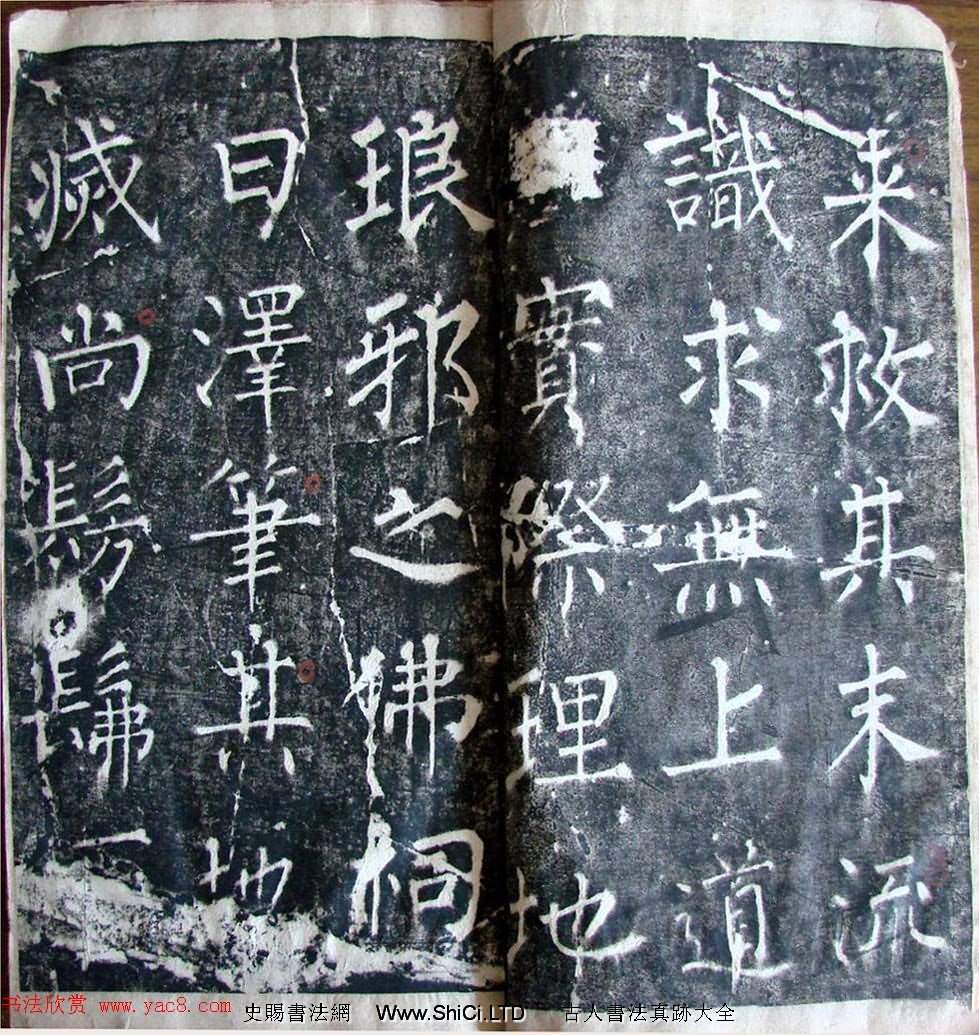 来救其末流
識求無上道
實際理地
琅邪之桐
曰澤筆其地
滅尚髣髴
书法欣赏 www.yac8.com 史賜書法網 Www.ShiCi.LTD 古人書法真跡大全